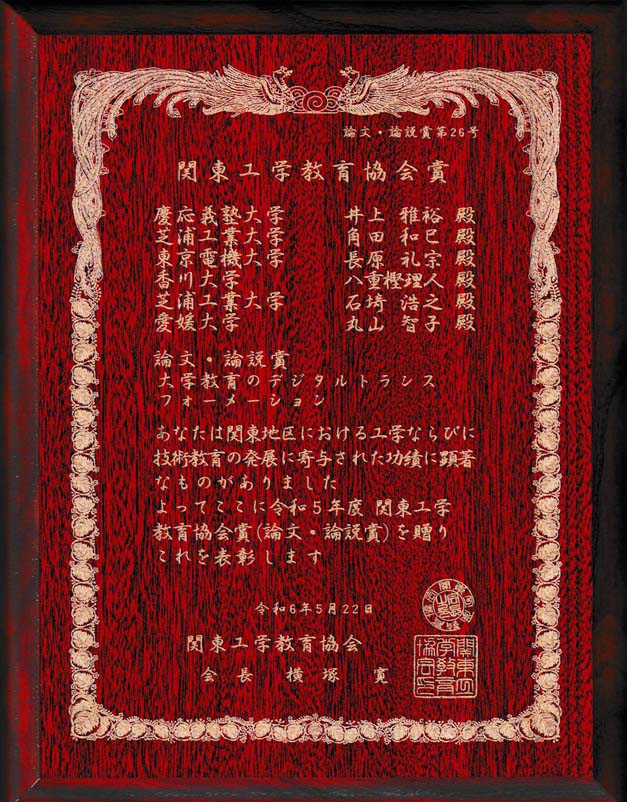 論文・論説賞第26号
関東工学教育協会賞
慶応義塾大学 井上雅裕 殿
芝浦工業大学 角田和巳 殿
東京電機大学 長原礼宗 殿
香川大学 八重樫理人 殿
芝浦工業大学 石埼浩之 殿
愛媛大学 丸山智子 殿
論文・論説賞
大学教育のデジタルトランス
フォーメーション
あなたは関東地区における工学ならびに
技術教育の発展に寄与された功績に顕著
なものがありました
よってここに令和5年度 関東工学
教育協会賞(論文・論説賞)を贈り
これを表彰します
令和6年5月22日
関東工学教育協会
会長 横塚 寛